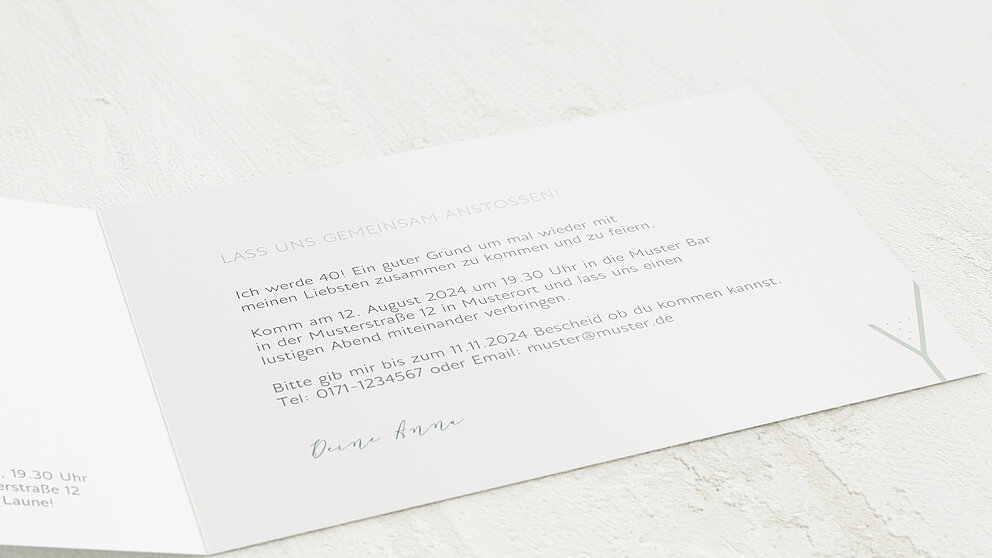 LASS UNS GEMEINSAM ANSTOSSEN!
Ich werde 40! Ein guter Grund um mal wieder mit
meinen Liebsten zusammen zu kommen und zu feiern.
Komm am 12. August 2024 um 19.30 Uhr in die Muster Bar
in der Musterstraße 12 in Musterort und lass uns einen
lustigen Abend miteinander verbringen.
Bitte gib mir bis zum 11.11.2024 Bescheid ob du kommen kannst.
Tel: 0171-1234567 oder Email: muster@muster.de
Deine Anna
. 19.30 Uhr
erstraße 12
Laune!